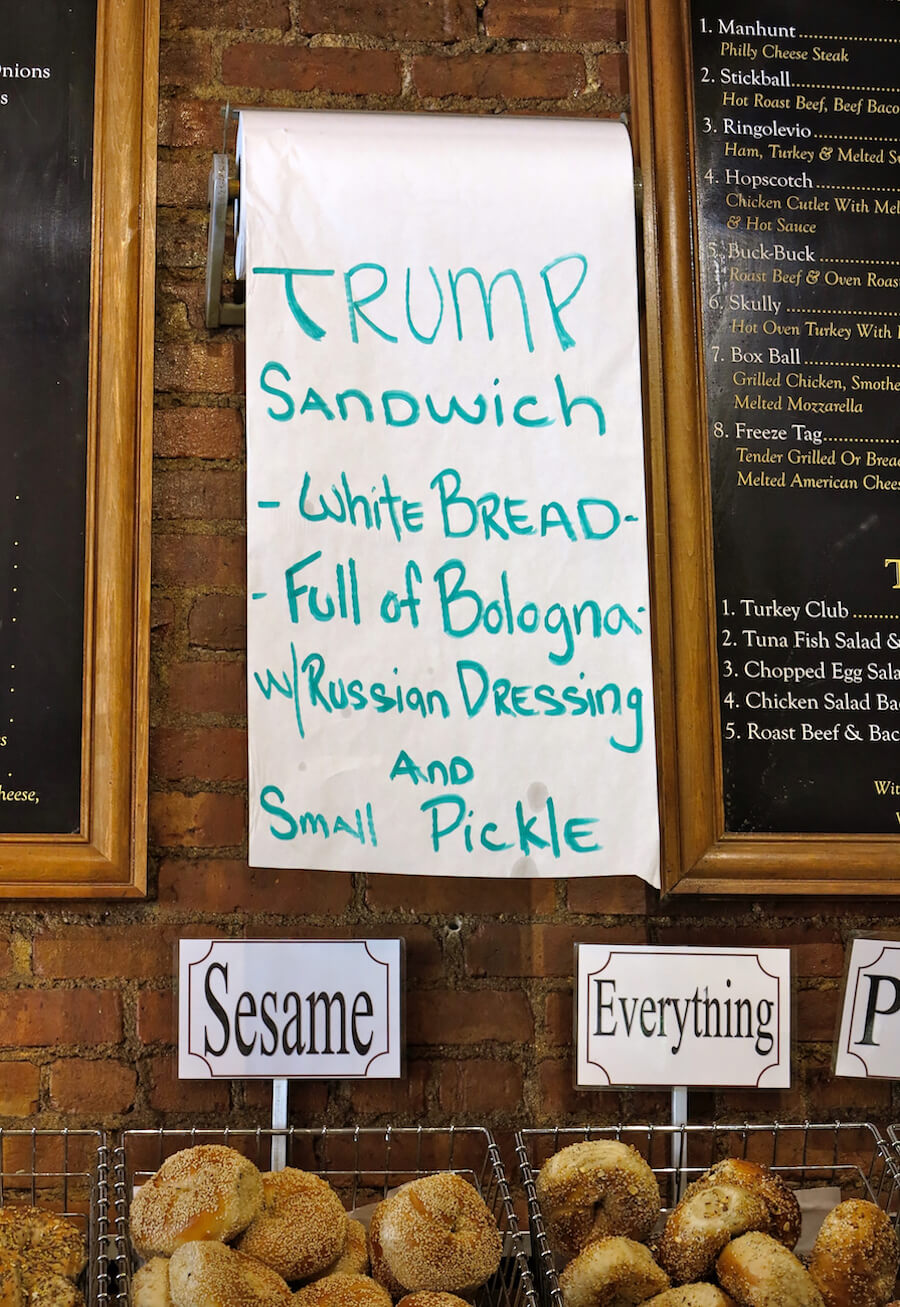 TRUMP
SANDWICH
- White BREAD -
- Full of Bologna -
w/ RUSSIAN DRESSING
AND
Small Pickle
1. Manhunt
Philly Cheese Steak
2. Stickball
Hot Roast Beef, Beef
3. Ringolevio
Ham, Turkey & Melted
4. Hopscotch
Chicken Cutlet With
& Hot Sauce
5. Buck-Buck
Roast Beef & Oven
6. Skully
Hot Oven Turkey With
7. Box Ball
Grilled Chicken,
Melted Mozzarella
8. Freeze Tag
Tender Grilled Or
Melted American
1. Turkey Club
2. Tuna Fish Salad &
3. Chopped Egg
4. Chicken Salad
5. Roast Beef &
Sesame
Everything